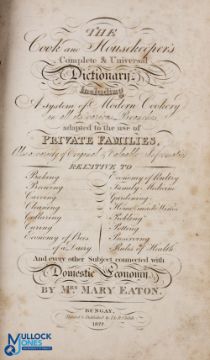 THE
Cook and Housekeeper's
Complete & Universal
Dictionary;
Including
A system of Modern Cookery
in all its various Branches,
adapted to the use of
PRIVATE FAMILIES,
Also a variety of Original & Valuable Information
RELATIVE TO
Baking
Brewing
Carving
Cleaning
Collaring
Curing
Economy of Bees
of a Dairy
Economy of Poultry
Family Medicine
Gardening
Home-made Wines
Pickling
Potting
Preserving
Rules of Health
And every other Subject connected with
Domestic Economy.
BY MRS MARY EATON.
BUNGAY,
Printed & Published by J. & R. Childs
1822
MULLOCK
JONES